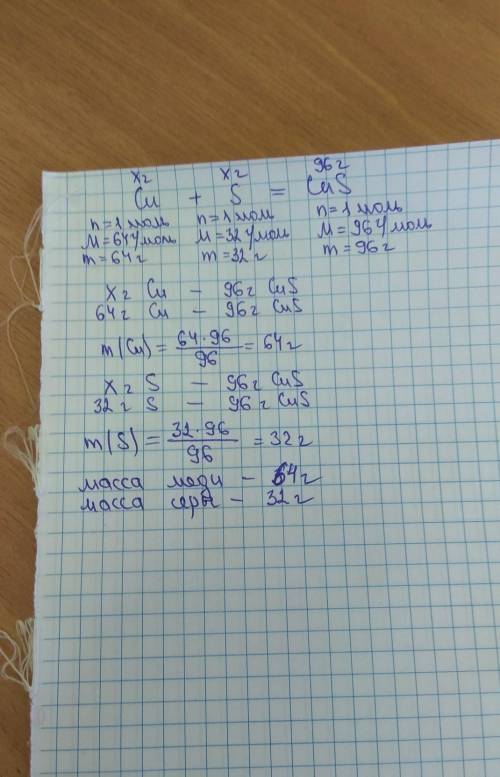 x г x г 96 г
Cu + S = CuS
n = 1 моль n = 1 моль n = 1 моль
M = 64 г/моль M = 32 г/моль M = 96 г/моль
m = 64 г m = 32 г m = 96 г
x г Cu — 96 г CuS
64 г Cu — 96 г CuS
m(Cu) = 64·96/96 = 64 г
x г S — 96 г CuS
32 г S — 96 г CuS
m(S) = 32·96/96 = 32 г
масса меди — 64 г
масса серы — 32 г